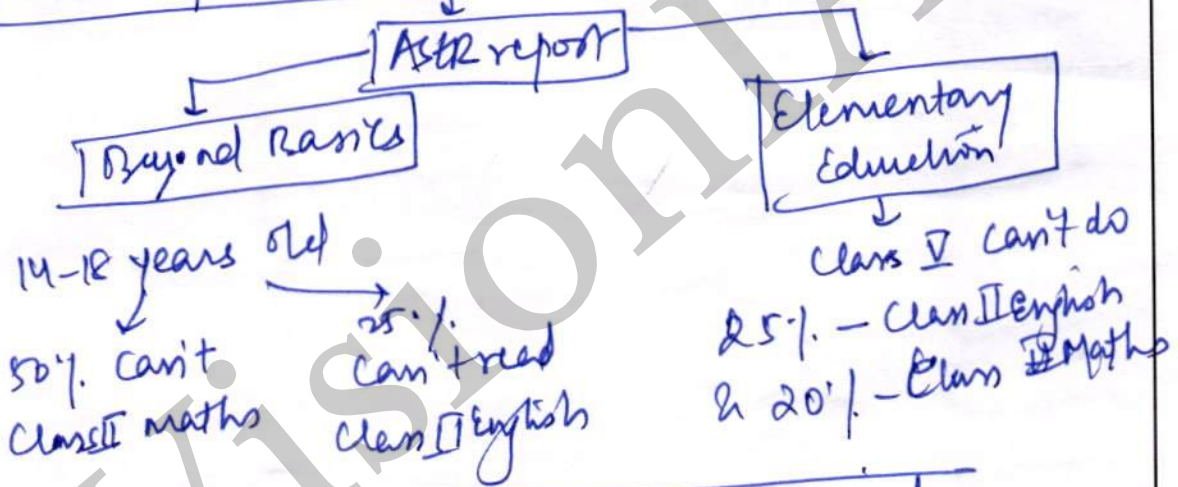 ASER report
Beyond Basics
14-18 years old
50% can't
Class II maths
25%
can't read
Class II English
Elementary
Education
Class V can't do
25% - Class II English
& 20% - Class II Maths
Vision IAS